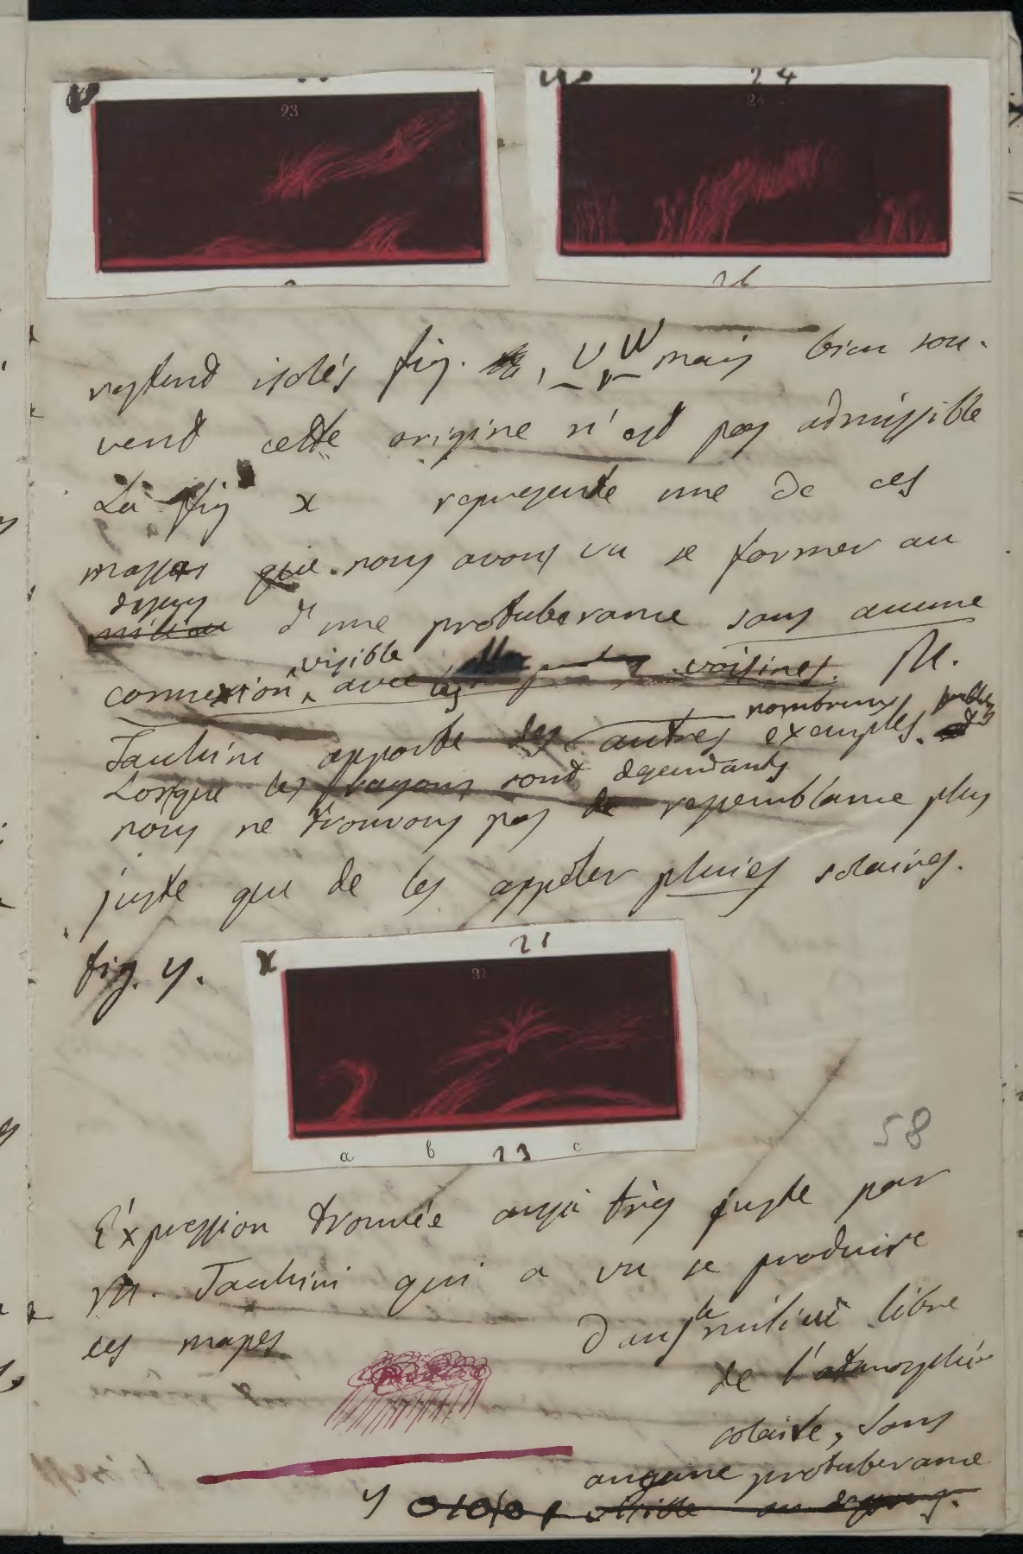 23
24
24
26
restent isolés fig. , U, W mais bien sou-
vent cette origine n'est pas admissible
La fig x represente une de ces
masses que nous avons vu se former au
dessus
milieu d'une protuberance sans aucune
visible
connexion avec les voisines. M.
nombreux
Tacchini apporte des autres exemples.
Lorsque les rayons sont dependants
nous ne trouvons pas de ressemblance plus
juste que de les appeler pluies solaires.
fig. y.
x 21
21
a b 13 c
58
Expression trouvée aussi très juste par
M. Tacchini qui a vu se produire
ces masses dans le milieu libre
de l'atmosphère
solaire, sans
aucune protuberance
y visible au dessous.